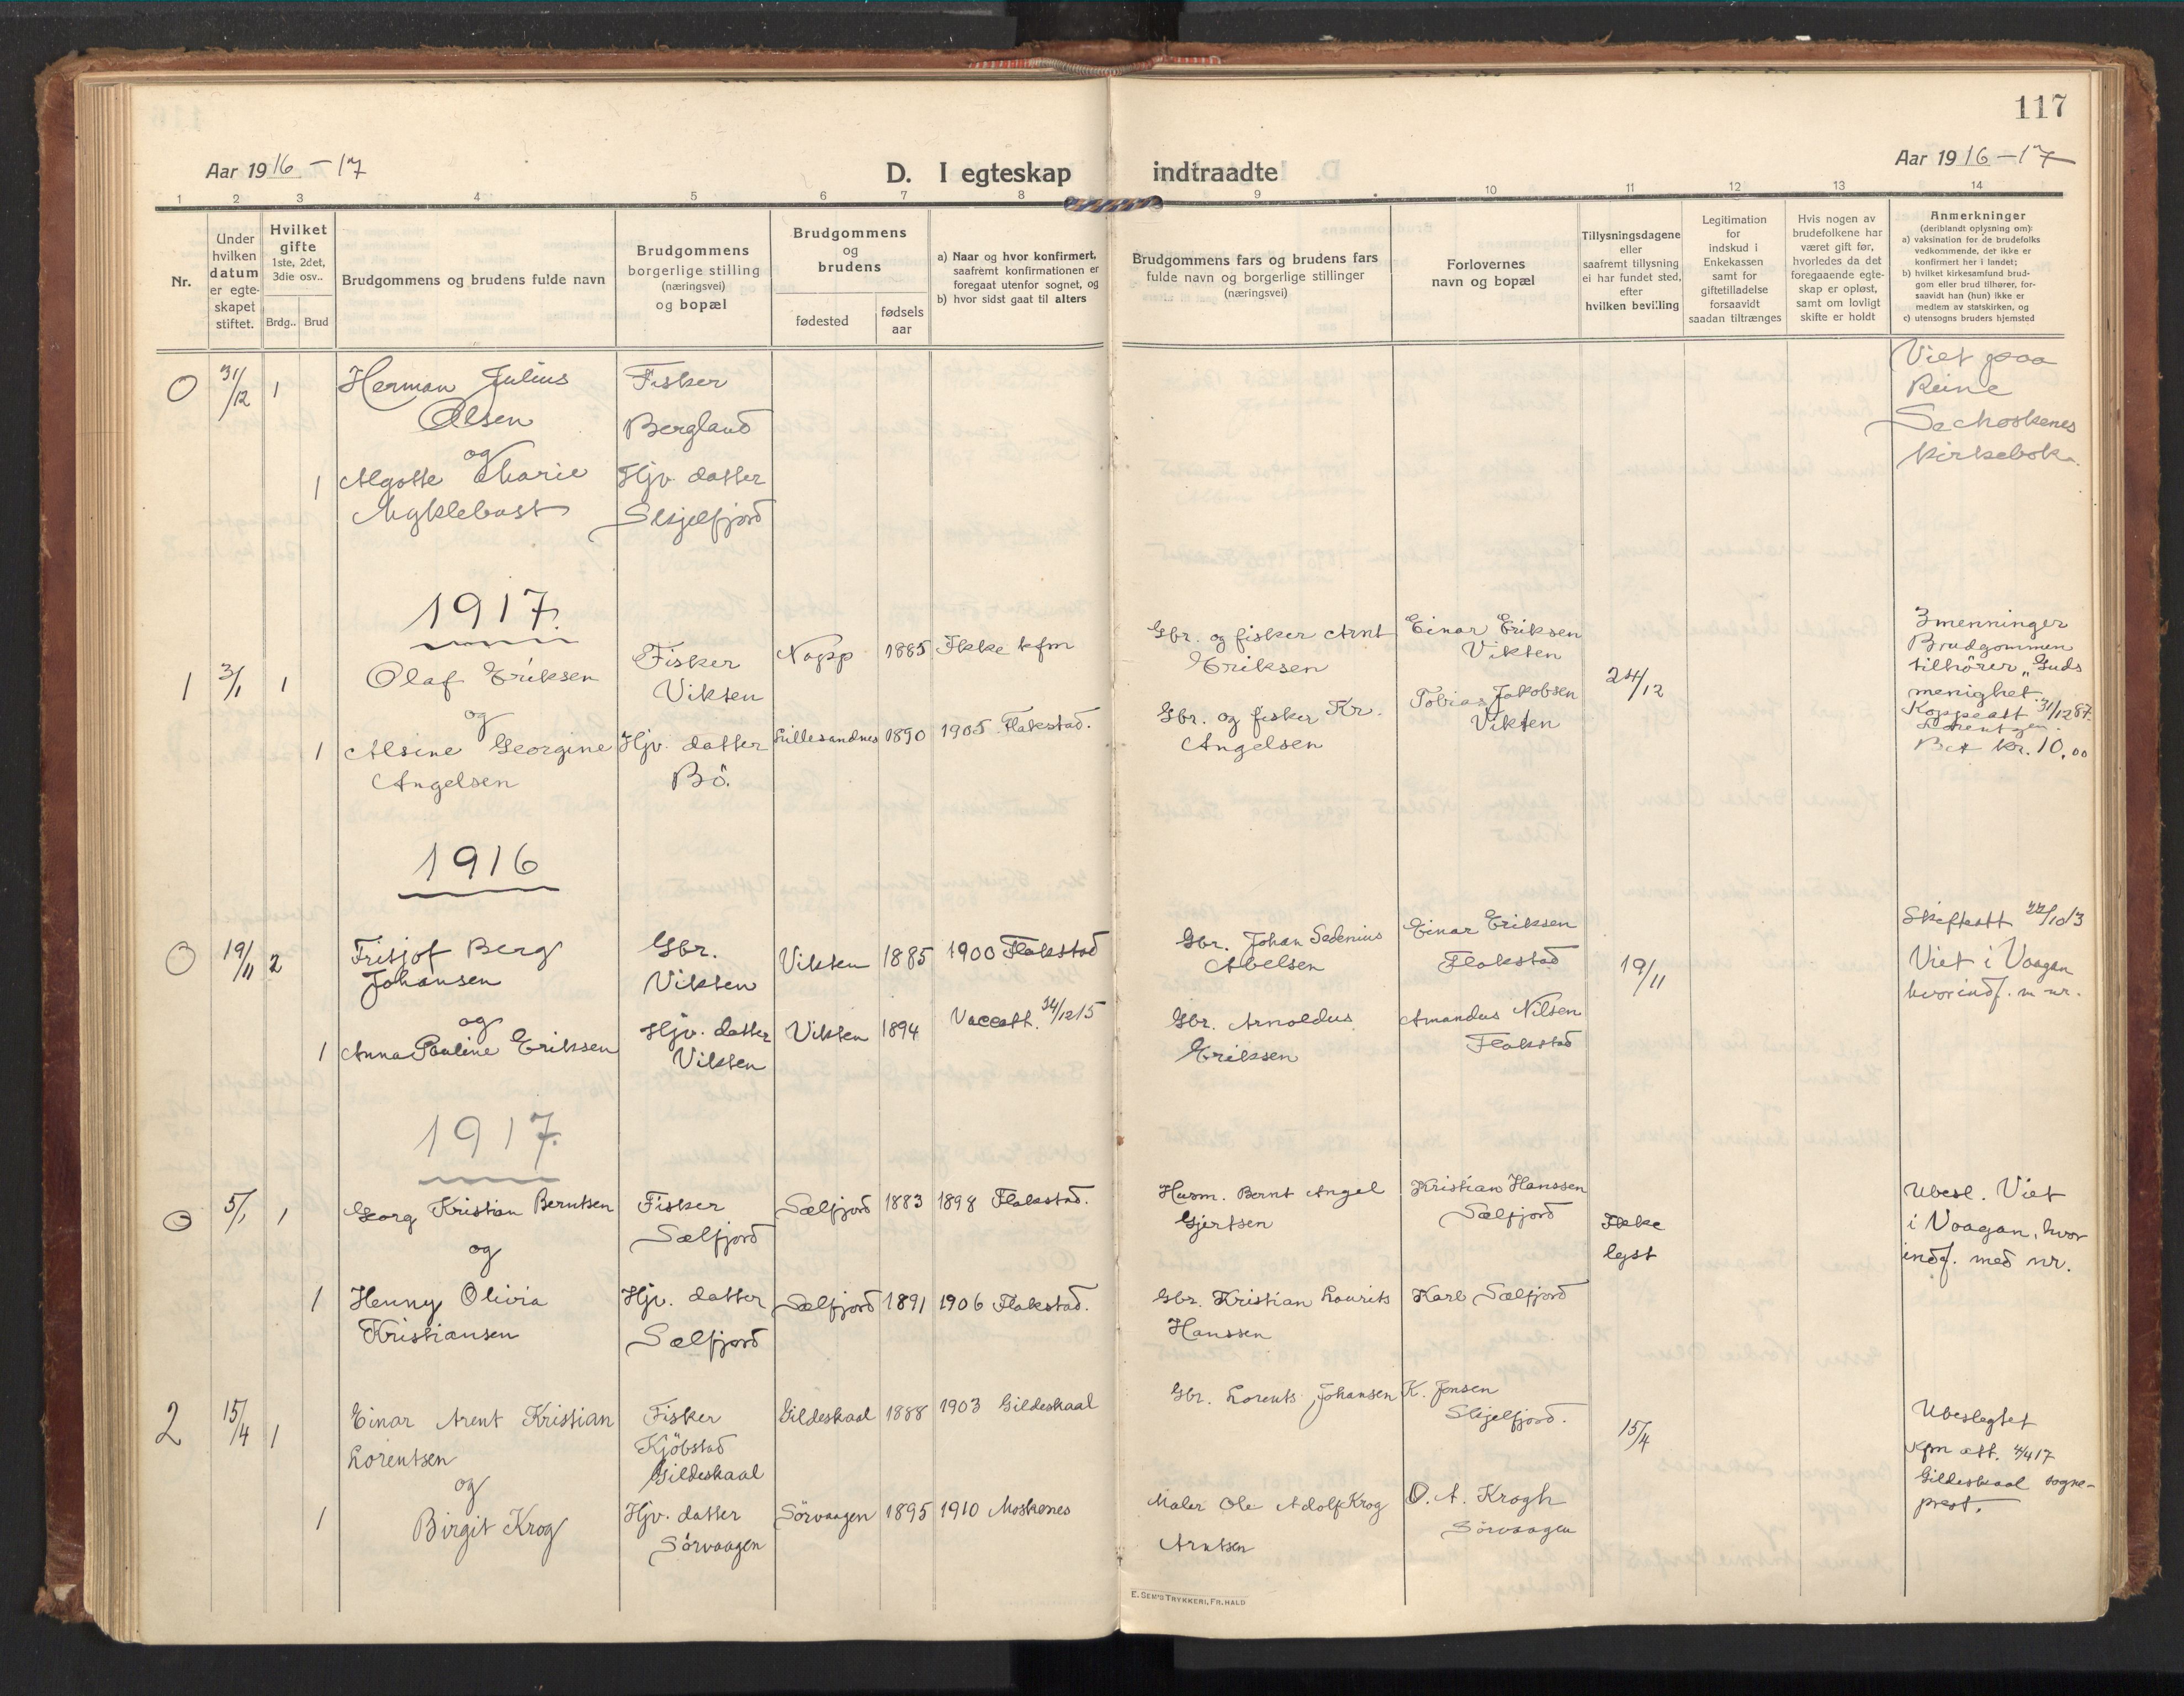 117
Aar 1916-17
D. I egteskap indtraadte
Aar 1916-17
1 2 3 4 5 6 7 8 9 10 11 12 13 14
Nr.
Under
hvilken
datum
er egte-
skapet
stiftet.
Hvilket
gifte
1ste, 2det,
3die osv..
Brdg.. Brud
Brudgommens og brudens fulde navn
Brudgommens
borgerlige stilling
(næringsvei)
og bopæl
Brudgommens
og
brudens
fødested
fødsels
aar
a) Naar og hvor konfirmert,
saafremt konfirmationen er
foregaat utenfor sognet, og
b) hvor sidst gaat til alters
Brudgommens fars og brudens fars
fulde navn og borgerlige stillinger
(næringsvei)
Forlovernes
navn og bopæl
Tillysningsdagene
eller
saafremt tillysning
ei har fundet sted,
efter
hvilken bevilling
Legitimation
for
indskud i
Enkekassen
samt for
giftetilladelse
forsaavidt
saadan tiltrænges
Hvis nogen av
brudefolkene har
været gift før,
hvorledes da det
foregaaende egte-
skap er opløst,
samt om lovligt
skifte er holdt
Anmerkninger
(deriblandt oplysning om):
a) vaksination for de brudefolks
vedkommende, der ikke er
konfirmert her i landet;
b) hvilket kirkesamfund brud-
gom eller brud tilhører, for-
saavidt han (hun) ikke er
medlem av statskirken, og
c) utensogns bruders hjemsted
0 31/12 1 Herman Julius
Olsen
og
1 Algotte Marie
Myklebust
Fisker
Bergland
Hjv. datter
Skjelfjord
Viet paa
Reine
Se Moskenes
kirkebok.
1917.
1 3/1 1 Olaf Eriksen
og
1 Alsine Georgine
Angelsen
Fisker
Vikten
Hjv. datter
Bö.
Napp 1885 Ikke kfm
Lillesandnes 1890 1905 Flakstad.
Gbr. og fisker Arnt
Eriksen
Gbr. og fisker Kr.
Angelsen
Einar Eriksen
Vikten
Tobias Jakobsen
Vikten
24/12
3menninger
Brudgommen
tilhörer "Guds
menighet.
Koppeatt 31/12 87.
Lorentzen.
Bet kr. 10,00
1916
0 19/11 2 Fritjof Berg
Johansen
og
1 Anna Pauline Eriksen
Gbr.
Vikten
Hjv. datter
Vikten
Vikten 1885 1900 Flakstad
Vikten 1894 Vaccatt. 14/12 15
Gbr. Johan Sedenius
Abelsen
Gbr. Arnoldus
Eriksen
Einar Eriksen
Flakstad
Amandus Nilsen
Flakstad
19/11
Skifteatt 22/10 13
Viet i Vaagan
hvor indf. m nr.
1917.
0 5/1 1 Georg Kristian Berntsen
og
1 Henny Olivia
Kristiansen
Fisker
Sælfjord
Hjv. datter
Sælfjord
Sælfjord 1883 1898 Flakstad.
Sælfjord 1891 1906 Flakstad.
Husm. Bernt Angel
Gjertsen
Gbr. Kristian Laurits
Hanssen
Kristian Hanssen
Sælfjord
Karl Sælfjord
Ikke
lyst
Ubesl. Viet
i Vaagan, hvor
indf. med nr.
2 15/4 1 Einar Arent Kristian
Lorentsen
og
1 Birgit Krog
Fisker
Kjöbstad
Gildeskaal
Hjv. datter
Sörvaagen
Gildeskaal 1888 1903 Gildeskaal
Sörvaagen 1895 1910 Moskenes
Gbr. Lorents Johansen
Maler Ole Adolf Krog
Arntsen
K. Jensen
Skjelfjord.
O. A. Krogh
Sörvaagen
15/4
Ubeslegtet
Kfm att. 4/4 17
Gildeskaal sogne-
prest.
E. SEM'S TRYKKERI, FR.HALD